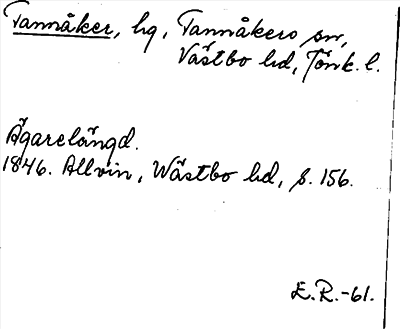 Tannåker, hg, Tannåkers sn,
Västbo hd, Jönk. l.
Ägarelängd.
1846. Allvin, Wästbo hd, s. 156.
E.R.-61.